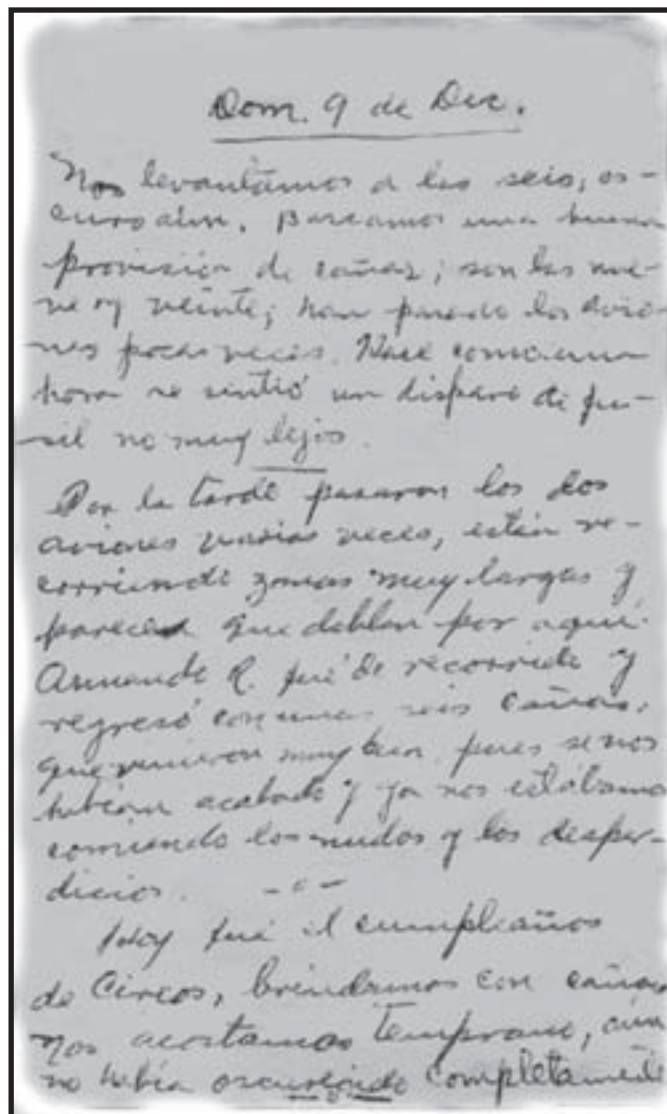 Dom. 9 de Dic.
Nos levantámos a las seis, os-
curo aún. Buscamos una buena
provisión de cañas; son las nue-
ve y veinte; han pasado los avio-
nes pocas veces. Hace como una
hora se sintió un disparo de fu-
sil no muy lejos.
Por la tarde pasaron los dos
aviones varias veces, están re-
corriendo zonas muy largas y
parece que doblan por aquí.
Armando R. fué de recorrido y
regresó con unas seis cañas,
que vinieron muy bien, pues se nos
habían acabado y ya nos estábamos
comiendo los nudos y los desper-
dicios. -o-
Hoy fué el cumpleaños
de Cireos, brindamos con cañas,
nos acostamos temprano, aún
no había oscurecido completamente